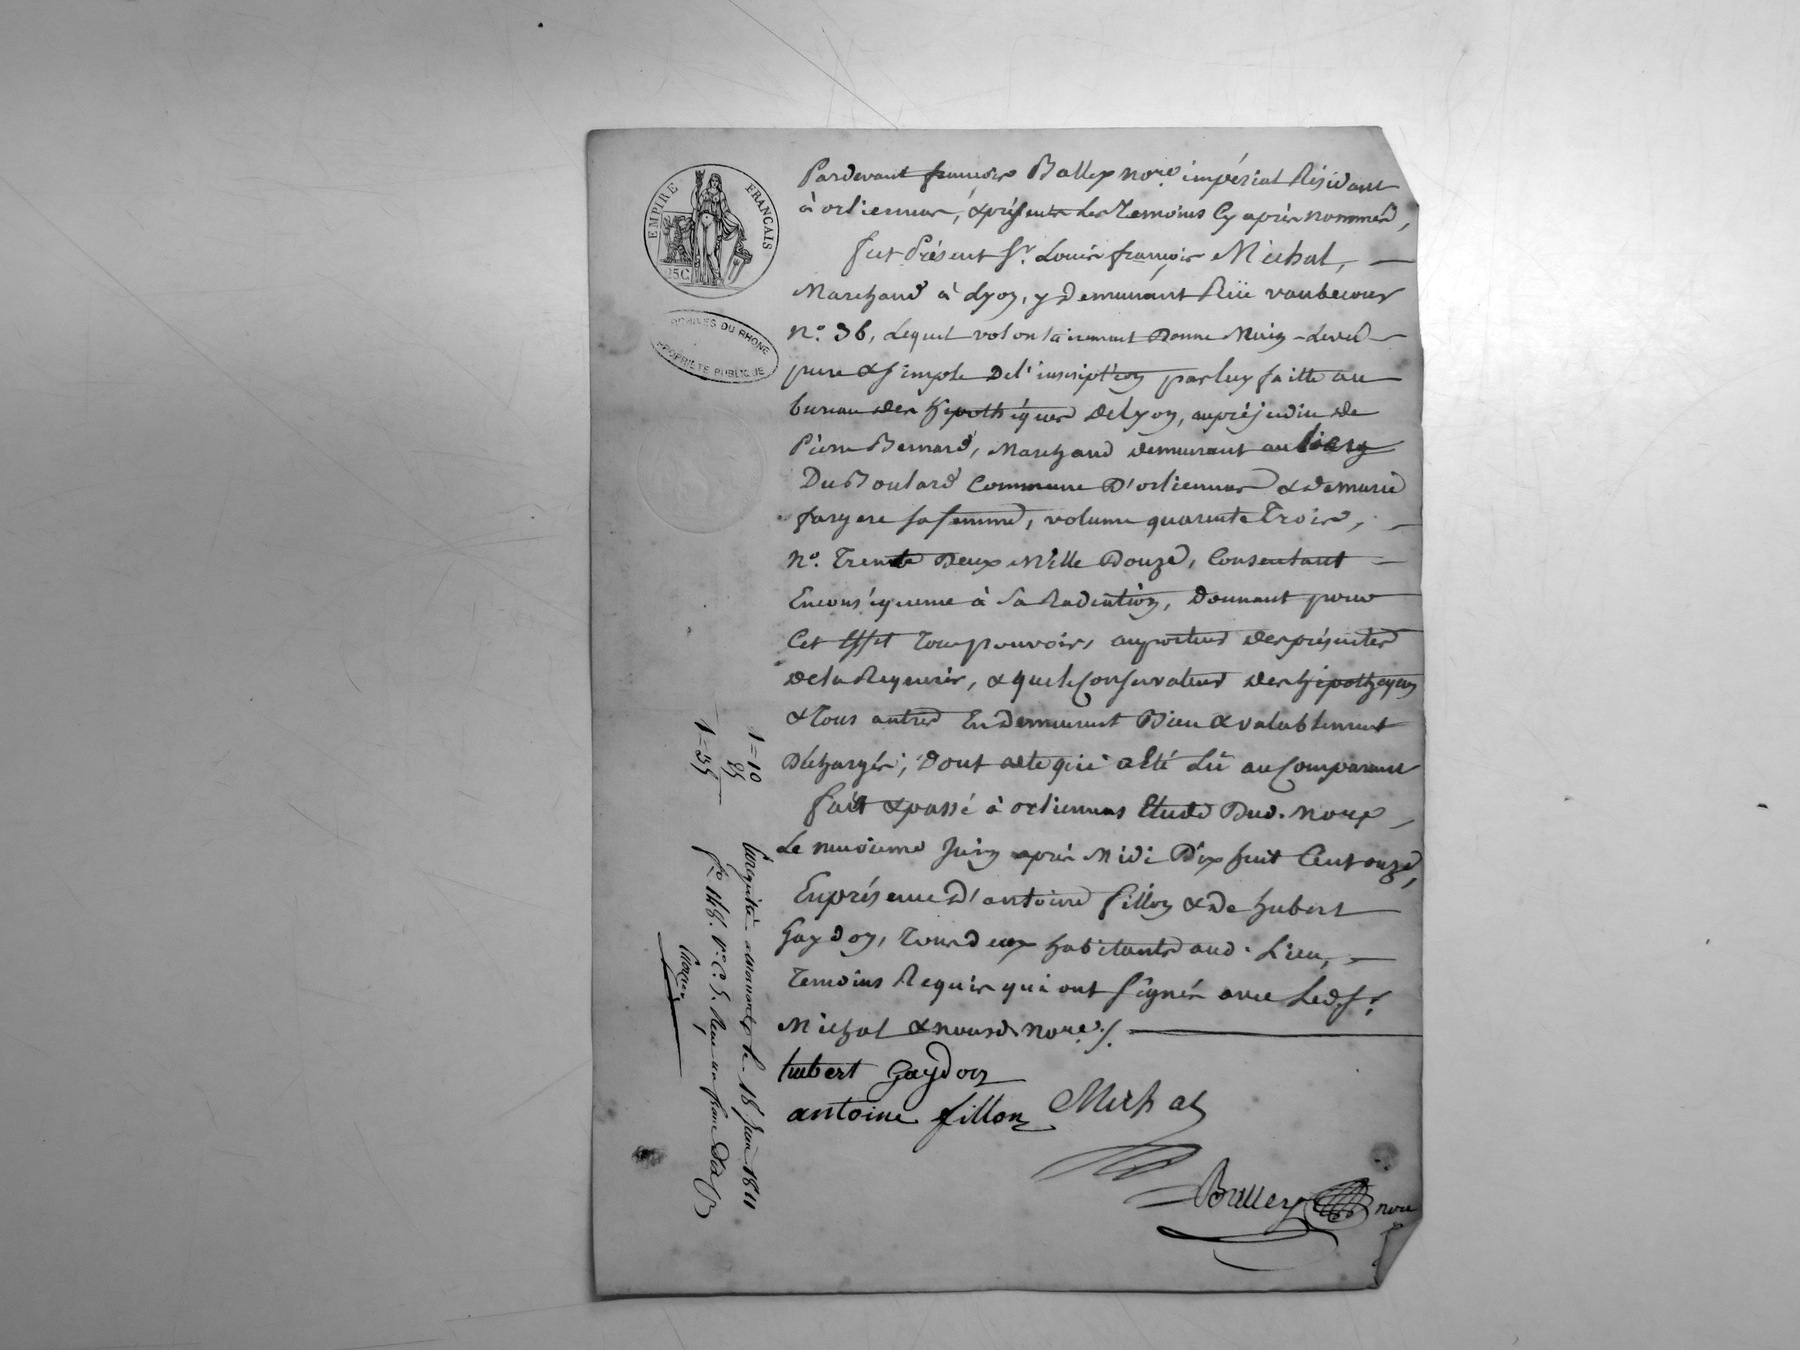 EMPIRE FRANÇAIS
25C
ARCHIVES DU RHONE
PROPRIÉTÉ PUBLIQUE
Pardevant françois Balley nore. impérial Résidant
à orliennas, & présents les Temoins Cy après nommés,
fut Présent Sr. Louis françois Michal, —
Marchand à Lyon, y Demeurant Rüe vaubecour
N°. 36, Lequel volontairement Donne Main-Levée —
pure & Simple De l'inscript'ion par luy faitte au
bureau des hipothéques De lyon, au préjudice de
Pierre Bernard, Marchand demeurant au
Du Boulard Commune D'orliennas & de marie
fargere sa femme, volume quarente Trois, —
N°. Trente Deux Mille Douze, Consentant —
En conséquence à Sa Radiation, Donnant pour
Cet Effet Tous pouvoirs au porteur des présentes
de la Requerir, & que le Conservateur des hipotheques
& Tous autres En Demeurent Bien & valablement
Déchargés; Dont acte qui a Eté Lû au Comparant
fait & passé à orliennas Etude Dud. Nore —
Le neuvieme Juin après Midi Dix huit Cent onze,
En présence D'antoine fillon & De hubert
Gaydon, Tous deux habitants aud. Lieu, —
Temoins Requis qui ont Signés avec Led. Sr.
Michal & nousd. Nore./. —
hubert Gaydon
antoine fillon Michal
Balley nore
1=10
25
1=35
Enregistré a mornant le 18 juin 1811
fo. 148. vo. C. 5. Reçu un franc dix